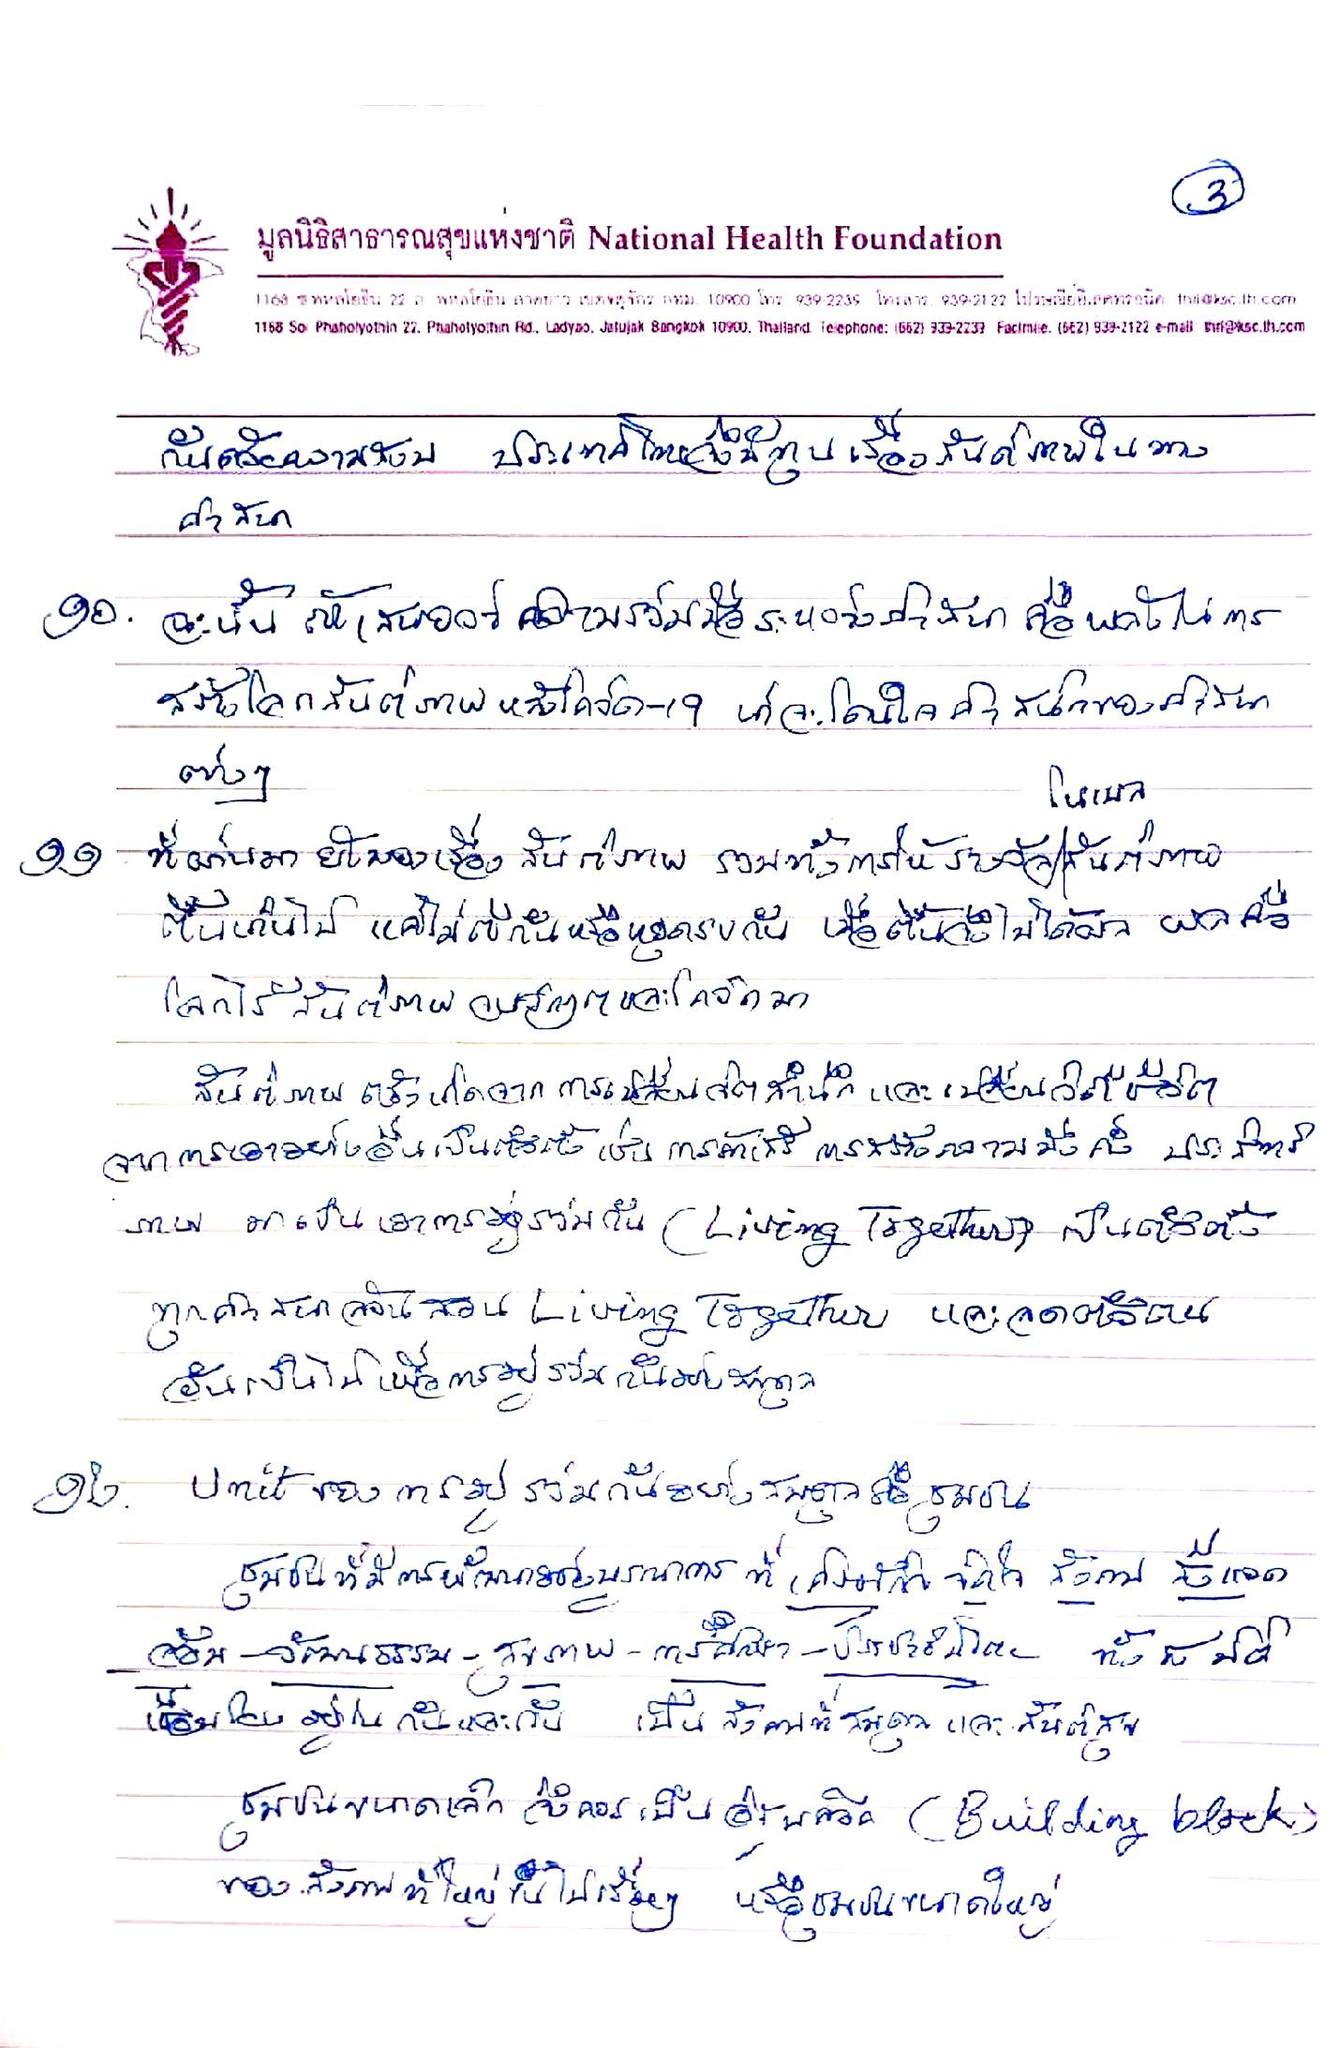 3
มูลนิธิสาธารณสุขแห่งชาติ National Health Foundation
1168 ซ.พหลโยธิน 22 ถ. พหลโยธิน ลาดยาว เขตจตุจักร กทม. 10900 โทร. 939-2239 โทรสาร. 939-2122 ไปรษณีย์อิเลคทรอนิค thrif@ksc.th.com
1168 Soi Phaholyothin 22, Phaholyothin Rd., Ladyao, Jatujak Bangkok 10900, Thailand. Telephone: (662) 939-2239 Facimile. (662) 939-2122 e-mail thrif@ksc.th.com
กันด้วยความสงบ ประเทศไทยจึงมีทุนเรื่องสันติภาพในทาง
ศาสนา
๑๐. ฉะนั้น ที่เสนอว่าความร่วมมือระหว่างศาสนา คือพลังในการ
สร้างโลกสันติภาพหลังโควิด-19 น่าจะโดนใจศาสนิกของศาสนา
ต่างๆ
โนเบล
๑๑ ที่ผ่านมา ยังมองเรื่องสันติภาพ รวมทั้งการให้รางวัลสันติภาพ
ตื้นเกินไป แค่ไม่ตีกันหรือหยุดรบกัน เมื่อตื้นจึงไม่ได้ผล ผลคือ
โลกไร้สันติภาพ จนวิกฤตและโควิดมา
สันติภาพจริงเกิดจากการเปลี่ยนจิตสำนึก และเปลี่ยนวิถีชีวิต
จากการเอาอย่างอื่นเป็นตัวตั้ง เช่น การค้าเสรี การสร้างความมั่งคั่ง ประสิทธิ
ภาพ มาเป็นเอาการอยู่ร่วมกัน (Living Together) เป็นตัวตั้ง
ทุกศาสนาล้วนสอน Living Together และลดตัวตน
อันเป็นไปเพื่อการอยู่ร่วมกันอย่างสมดุล
๑๒. Unit ของการอยู่ร่วมกันอย่างสมดุลคือชุมชน
ชุมชนที่มีการพัฒนาอย่างบูรณาการ ที่เศรษฐกิจ จิตใจ สังคม สิ่งแวด
ล้อม - วัฒนธรรม - สุขภาพ - การศึกษา - ประชาธิปไตย ทั้ง ๘ มิติ
เชื่อมโยงอยู่ในกันและกัน เป็นสังคมที่สมดุล และสันติสุข
ชุมชนขนาดเล็ก จึงควรเป็นอิฐบล็อค (Building block)
ของสังคมที่ใหญ่ขึ้นไปเรื่อยๆ หรือชุมชนขนาดใหญ่